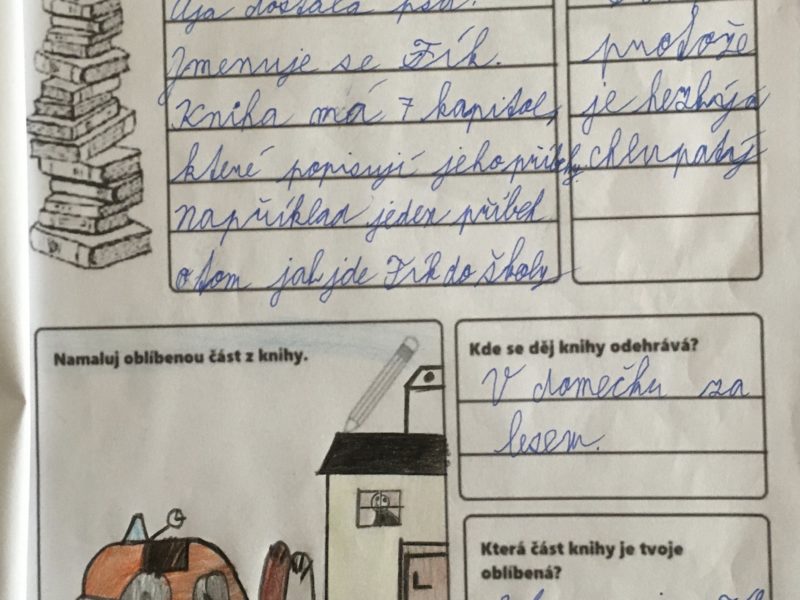 Ája dostala psa.
Jmenuje se Fík.
Kniha má 7 kapitol,
které popisují jeho příběhy.
například jeden příběh
o tom jak jde Fík do školy
protože
je hezký a
chlupatý
Namaluj oblíbenou část z knihy.
Kde se děj knihy odehrává?
V domečku za
lesem.
Která část knihy je tvoje
oblíbená?